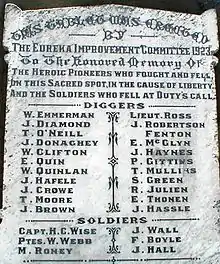 THIS TABLET WAS ERECTED
BY
THE EUREKA IMPROVEMENT COMMITTEE 1923
To The Honored Memory Of
THE HEROIC PIONEERS WHO FOUGHT AND FELL
ON THIS SACRED SPOT, IN THE CAUSE OF LIBERTY
AND THE SOLDIERS WHO FELL AT DUTY'S CALL.
DIGGERS
W. EMMERMAN LIEUT. ROSS
J. DIAMOND J. ROBERTSON
T. O'NEILL FENTON
J. DONAGHEY E. MCGLYN
W. CLIFTON J. HAYNES
E. QUIN P. GITTINS
W. QUINLAN T. MULLINS
J. HAFELE S. GREEN
J. CROWE R. JULIEN
T. MOORE E. THONEN
J. BROWN J. HASSLE
SOLDIERS
CAPT. H.C. WISE J. WALL
PTES. W. WEBB F. BOYLE
M. RONEY J. HALL